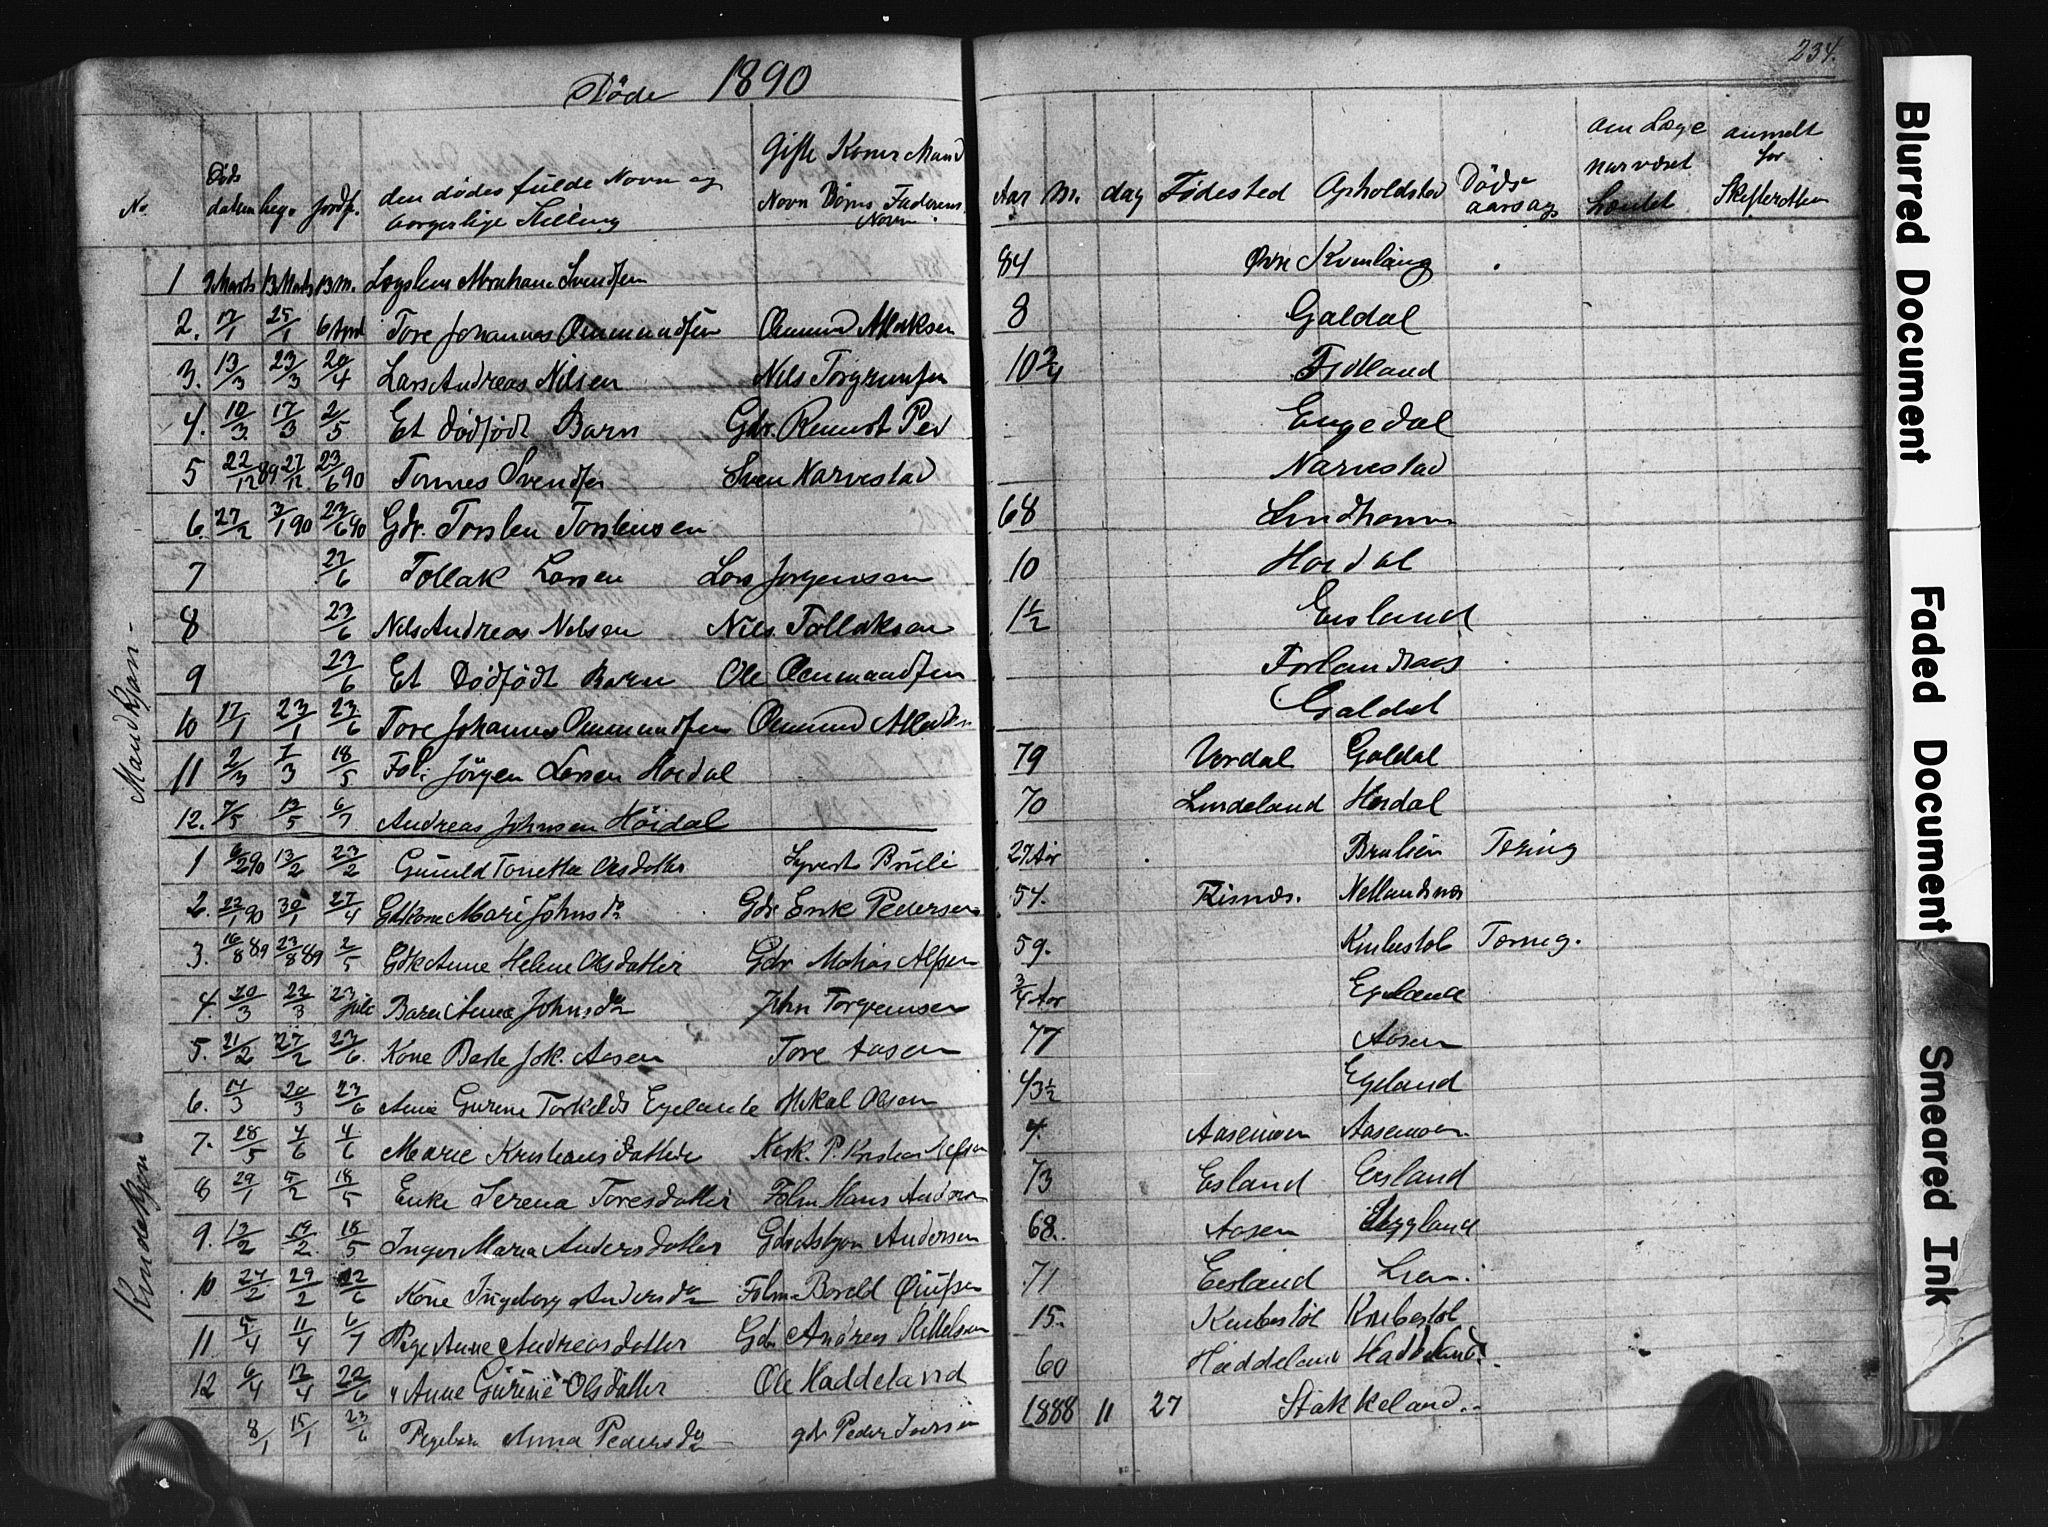 234.
Døde 1890
No Døds datum beg. Jordf. den dødes fulde Navn og borgerlige Stilling Gifte Koners Mand Navn Børns Faderens Navn Aar M. dag Fødested Opholdsted Døds aarsag om Læge har været hentet anmeldt for Skifteretten
Mandkjøn
1 9 Marts 13 Marts 13 M. Lægslem Abraham Svendsen 84 Øvre Kvinlaug
2. 17/1 25/1 6 April Tore Johannes Ommundsen Ommund Atlaksen 8 Galdal
3. 13/3 23/3 20/4 Lars Andreas Nilsen Nils Torgrimsen 10 3/4 Fidland
4. 10/3 17/3 2/5 Et Dødfødt Barn Gdr. Ped Engedal
5 22/12 89 27/12 23/6 90 Tønnes Svendsen Sven Narvestad Narvestad
6. 27/2 3/1 90 23/6 90 Gdr. Torsten Torstensen 68 Lindhom
7 23/6 Tollak Larsen Lars Jørgensen 10 Hoidal
8 23/6 Nils Andreas Nilsen Nils Tollaksen 1 1/2 Eisland
9 23/6 Et Dødfødt Barn Ole Ommundsen Forlandsaas
10 17/1 23/1 23/6 Tore Johannes Ommundsen Ommund Atlaksen Galdal
11 2/3 7/3 18/5. Fol: Jørgen Larsen Hoidal 79 Vordal Galdal
12. 7/5 13/5 6/7 Andreas Johnsen Høidal 70 Lindeland Hoidal
Kvindekjøn
1 6/2 90 13/2 23/2 Gunild Tonetta Olsdatter Syvert Bruli 27 Aar Brulien Tæring
2. 22/1 90 30/1 27/4 Gdkone Mari Johnsda Gdr Erik Pedersen 54. Risnæs. Netlandsnæs
3. 16/8 89 23/8 89 2/5 Gdk Anne Helene Olsdatter Gdr Mathias Alfsen 59. Knibestøl Tæring.
4. 20/3 22/3 23 Juli Barn Anne Johnsda John Torgrimsen 3/4 Aar Egeland
5. 21/2 27/2 23/6. Kone Berte Joh. Aasen Tore Aasen 77 Aasen
6. 14/3 20/3 23/6 Anne Gurine Torkelds Egelande Mikal Olsen 43 1/2 Egeland
7. 28/5 4/6 4/6 Marie Kristiansdatter Kirk. P. Kristian Alfsen 4. Aasemoen Aasemoen
8 29/1 5/2 18/5 Enke Serena Toresdatter Folm Hans Andersen 73 Eisland Eisland
9. 12/2 19/2. 18/5 Inger Maria Andersdatter Gdr Asbjørn Andersen 68. Aasen Eyggland
10 24/2 29/2 22/6 Kone Ingeborg Andersda Folm Boreld Ølufsen 71 Eisland Lien.
11. 5/4 11/4 6/7 Pige Anne Andreasdatter Gdr Andreas Kittelsen 15. Knibestøl Knibestøl
12 6/4 12/4 22/6 " Anne Gurine Olsdatter Ole Haddeland 60 Haddeland Haddeland
8/1 15/1 23/6 Pigebarn Anna Pedersda gdr Peder Iversen 1888 11 27 Stakkeland
Blurred Document
Faded Document
Smeared Ink